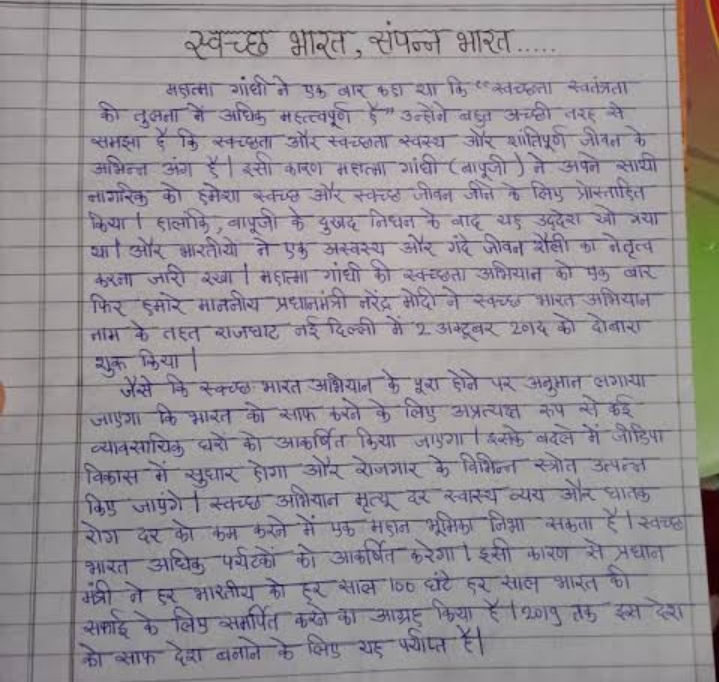 स्वच्छ भारत, संपन्न भारत.....
महात्मा गांधी ने एक बार कहा था कि "स्वच्छता स्वतंत्रता
की तुलना में अधिक महत्त्वपूर्ण है" उन्होने बहुत अच्छी तरह से
समझा है कि स्वच्छता और स्वच्छता स्वस्थ और शांतिपूर्ण जीवन के
अभिन्न अंग है। इसी कारण महात्मा गांधी (बापूजी) ने अपने साथी
नागरिक को हमेशा स्वच्छ और स्वच्छ जीवन जीने के लिए प्रोत्साहित
किया। हालांकि, बापूजी के दुखद निधन के बाद यह उद्देश खो गया
था। और भारतीयो ने एक अस्वस्थ और गंदे जीवन शैली का नेतृत्व
करना जारी रखा। महात्मा गांधी की स्वच्छता अभियान को एक बार
फिर हमारे माननीय प्रधानमंत्री नरेंद्र मोदी ने स्वच्छ भारत अभियान
नाम के तहत राजघाट नई दिल्ली में 2 अक्टूबर 2०१८ को दोबारा
शुरू किया।
जैसे कि स्वच्छ भारत अभियान के पूरा होने पर अनुमान लगाया
जाएगा कि भारत को साफ करने के लिए अप्रत्यक्ष रूप से कई
व्यावसायिक घरो को आकर्षित किया जाएगा। इसके बदले में जीडिपा
विकास में सुधार होगा और रोजगार के विभिन्न स्त्रोत उत्पन्न
किए जाएंगे। स्वच्छ अभियान मृत्यू दर स्वास्थ्य व्यय और घातक
रोग दर को कम करने में एक महान भूमिका निभा सकता है। स्वच्छ
भारत अधिक पर्यटको को आकर्षित करेगा। इसी कारण से प्रधान
मंत्री ने हर भारतीय को हर साल 100 घंटे हर साल भारत की
सफाई के लिए समर्पित करने का आग्रह किया है। 2019 तक इस देश
को साफ देश बनाने के लिए यह पर्याप्त है।